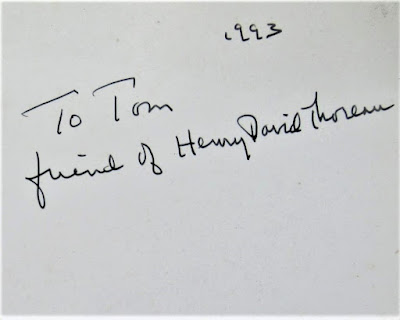 1993
To Tom
friend of Henry David Thoreau